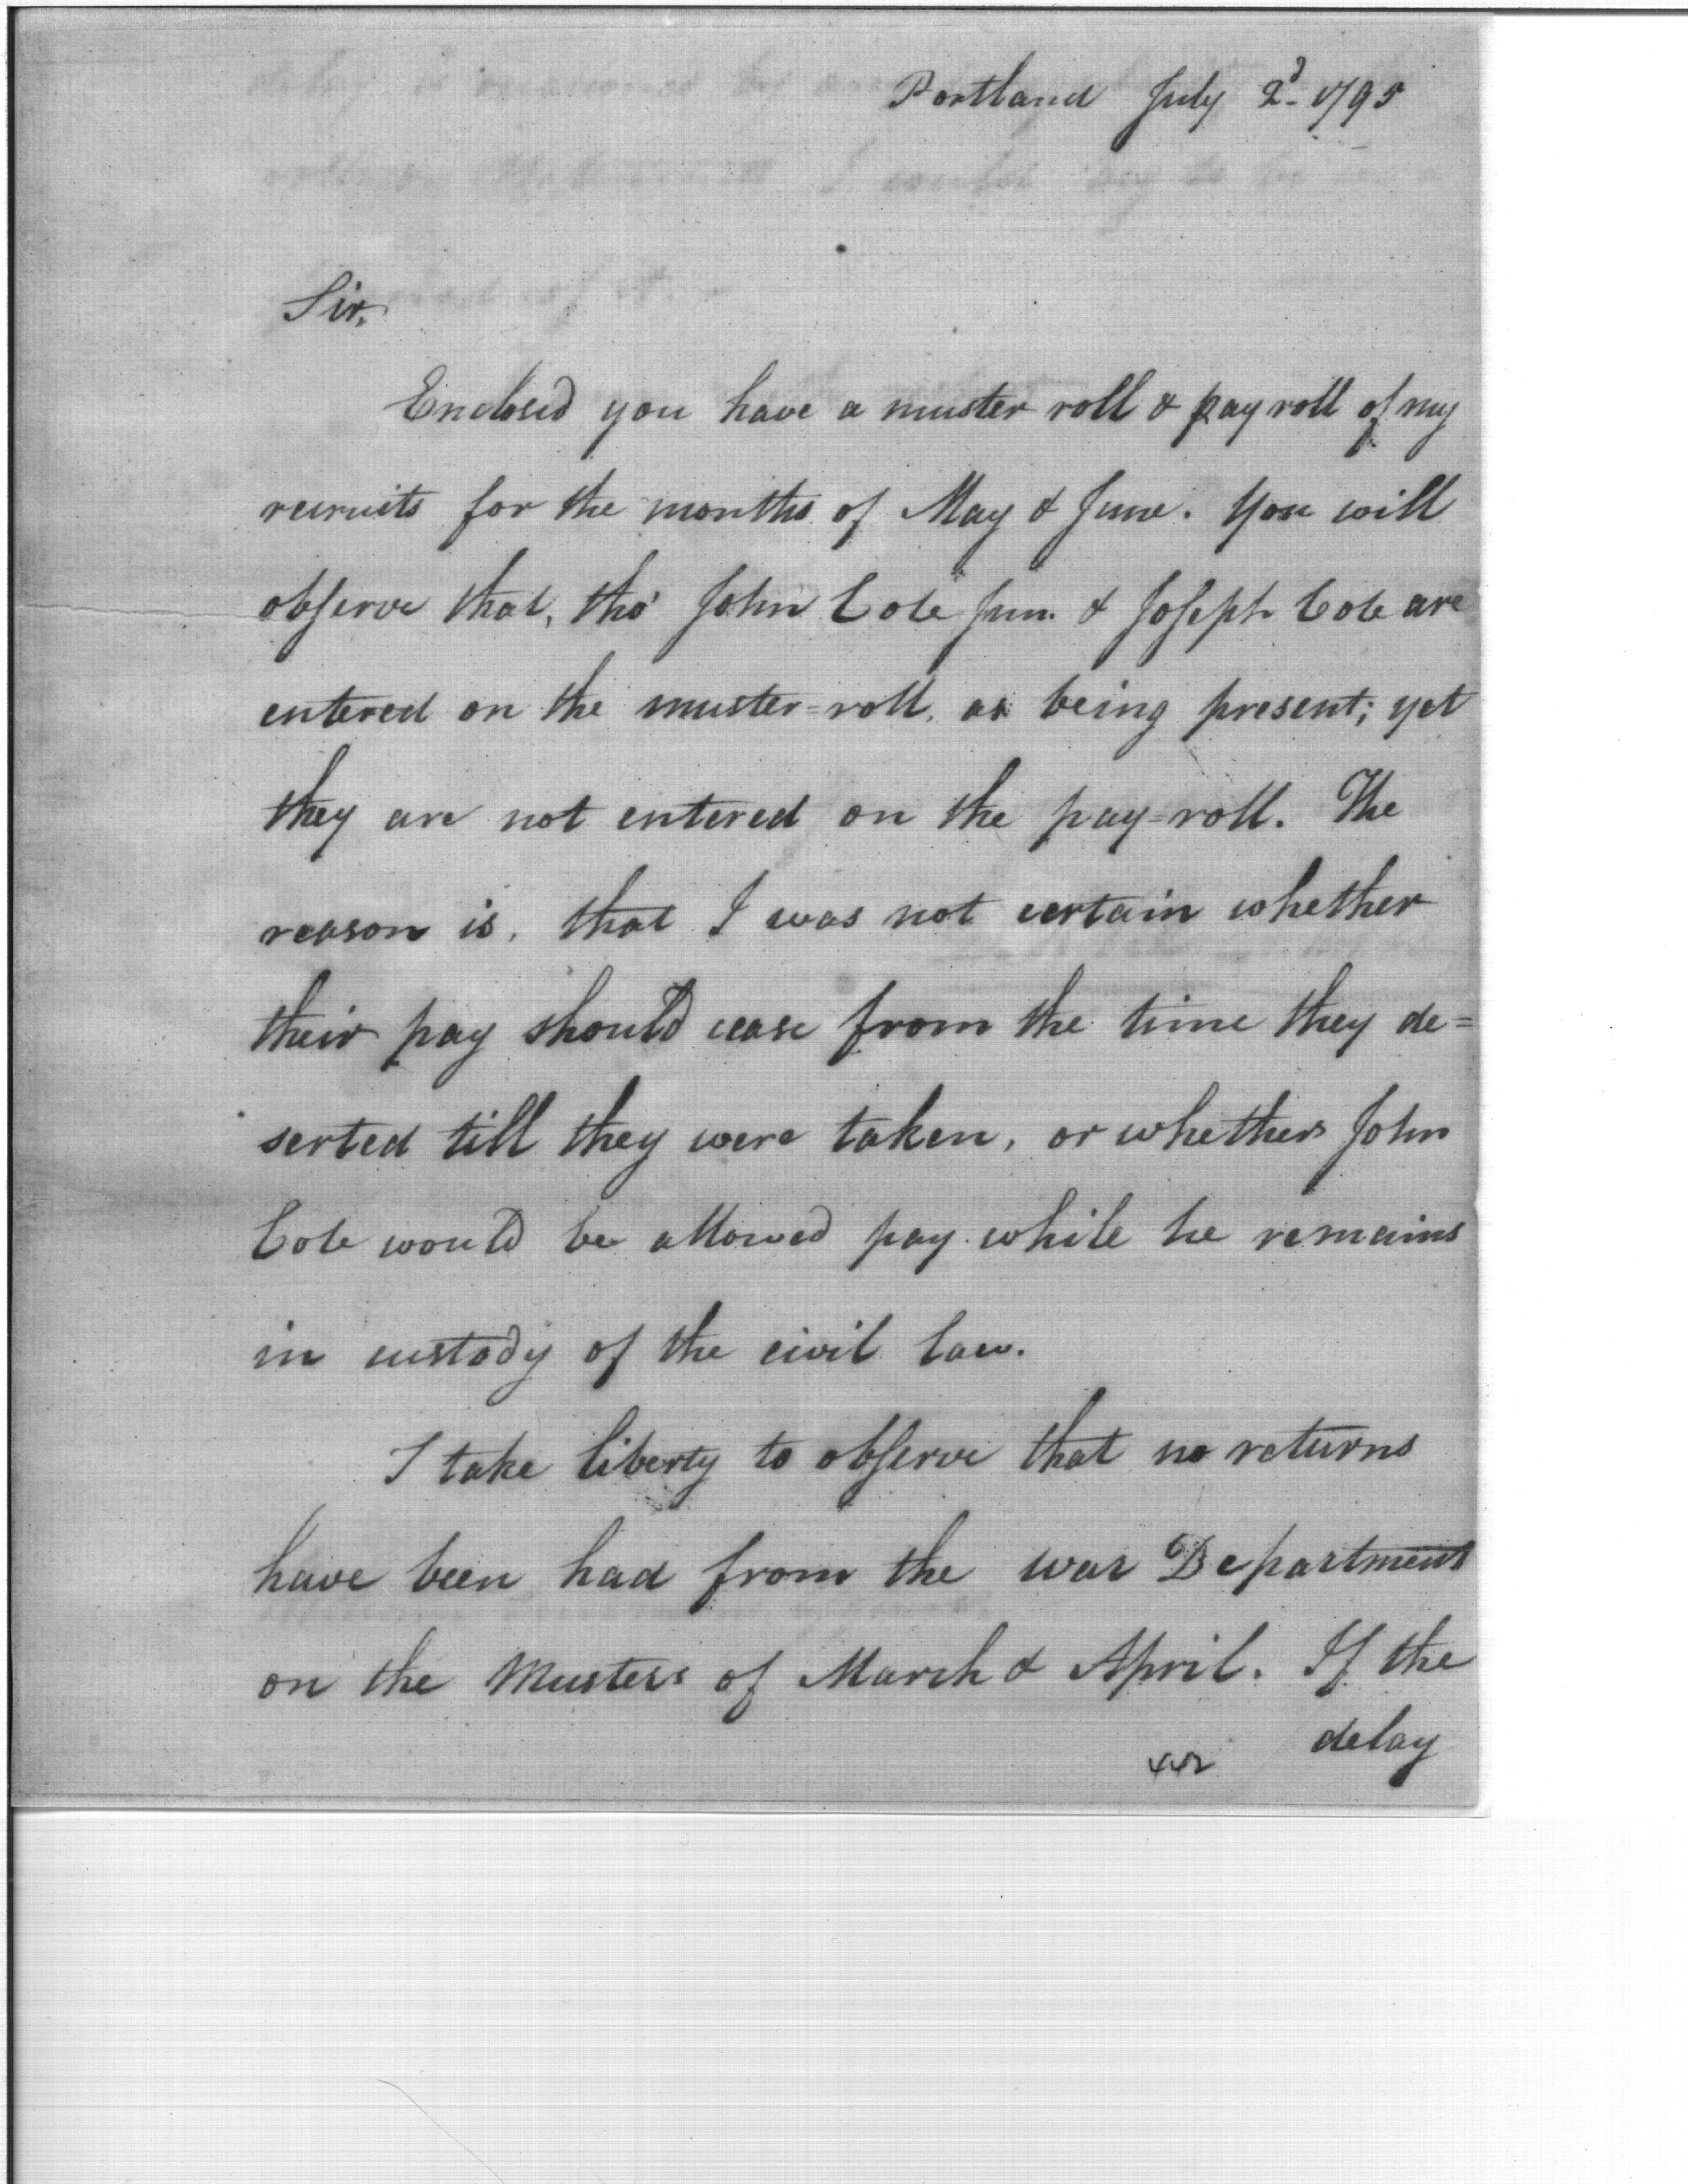 Portland July 2d 1795
Sir,
Enclosed you have a muster roll & pay roll of my
recruits for the months of May & June. You will
observe that, tho' John Cole Jun. & Joseph Cole are
entered on the muster=roll, as being present; yet
they are not entered on the pay=roll. The
reason is, that I was not certain whether
their pay should cease from the time they de=
serted till they were taken, or whether John
Cole would be allowed pay while he remains
in custody of the civil law.
I take liberty to observe that no returns
have been had from the war Department
on the Musters of March & April. If the
delay